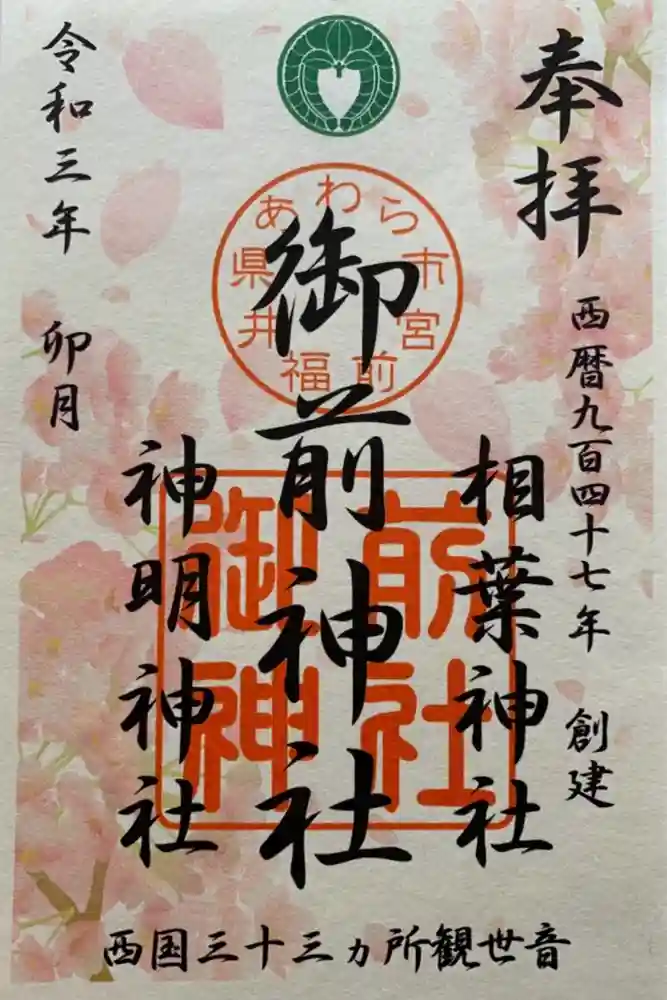 奉拝
西暦九百四十七年 創建
相葉神社
福井県あわら市宮前
御前神社
御前
神社
神明神社
令和三年 卯月
西国三十三ヵ所観世音